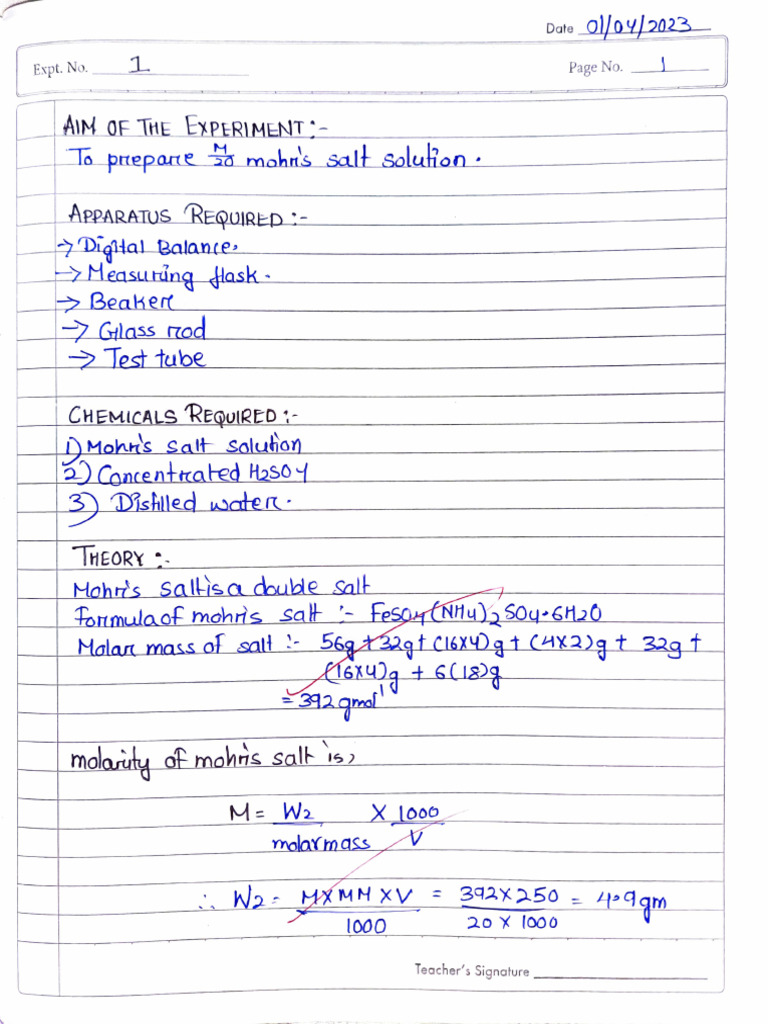 Date 01/04/2023
Expt. No. 1
Page No. 1
AIM OF THE EXPERIMENT:-
To prepare M/20 mohr's salt solution.
APPARATUS REQUIRED:-
→ Digital Balance.
→ Measuring flask.
→ Beaker
→ Glass rod
→ Test tube
CHEMICALS REQUIRED:-
1) Mohr's salt solution
2) Concentrated H2SO4
3) Distilled water.
THEORY:-
Mohr's salt is a double salt
Formula of mohr's salt :- FeSO4(NH4)2SO4·6H2O
Molar mass of salt :- 56g + 32g + (16X4)g + (4X2)g + 32g +
(16X4)g + 6(18)g
= 392 gmol¹
molarity of mohr's salt is,
M = W2/molar mass X 1000/V
∴ W2 = MXMMXV/1000 = 392X250/20X1000 = 4.9gm
Teacher's Signature